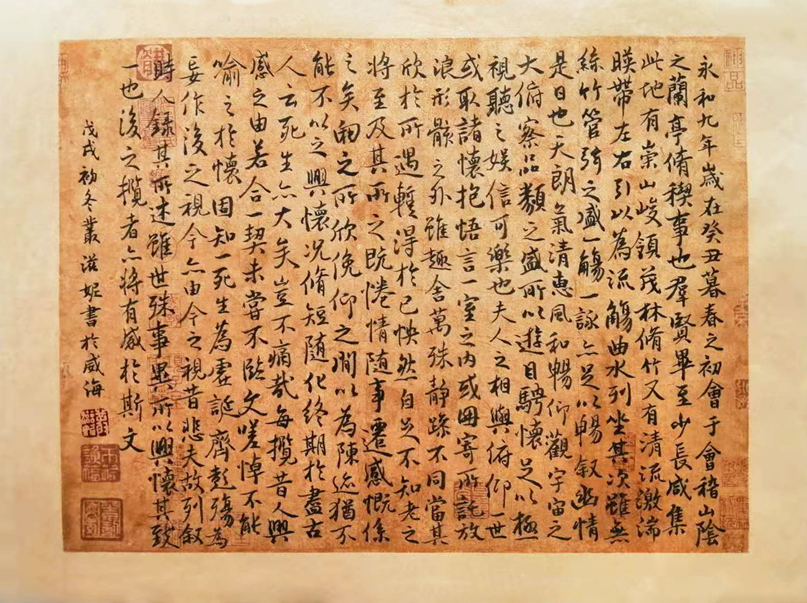 永和九年歲在癸丑暮春之初會于會稽山陰
之蘭亭脩稧事也羣賢畢至少長咸集
此地有崇山峻領茂林脩竹又有清流激湍
暎帶左右引以為流觴曲水列坐其次雖無
絲竹管弦之盛一觴一詠亦足以暢叙幽情
是日也天朗氣清惠風和暢仰觀宇宙之
大俯察品類之盛所以遊目騁懷足以極
視聽之娛信可樂也夫人之相與俯仰一世
或取諸懷抱悟言一室之内或因寄所託放
浪形骸之外雖趣舍萬殊静躁不同當其
欣於所遇暫得於己怏然自足不知老之
將至及其所之既惓情隨事遷感慨係
之矣向之所欣俛仰之間以為陳迹猶不
能不以之興懷况脩短隨化終期於盡古
人云死生亦大矣豈不痛哉每攬昔人興
感之由若合一契未嘗不臨文嗟悼不能
喻之於懷固知一死生為虛誕齊彭殤為
妄作後之視今亦由今之視昔悲夫故列叙
時人録其所述雖世殊事異所以興懷其致
一也後之攬者亦將有感於斯文
戊戌初冬叢滋妮書於威海